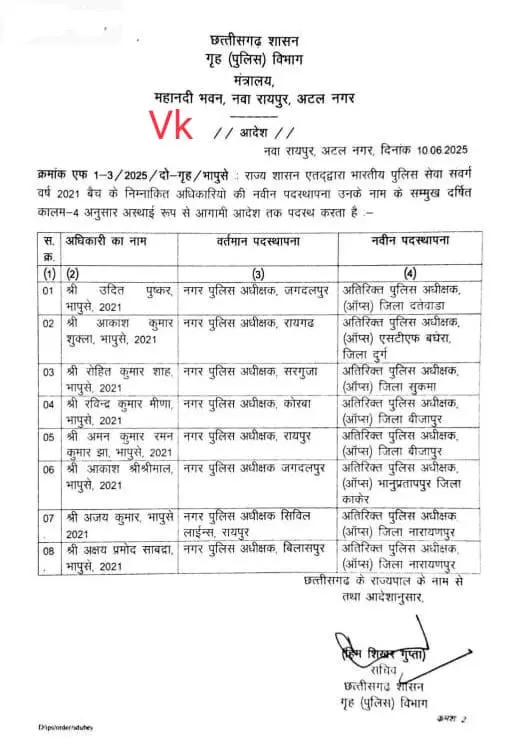 छत्तीसगढ़ शासन
गृह (पुलिस) विभाग
मंत्रालय,
महानदी भवन, नवा रायपुर, अटल नगर
Vk
// आदेश //
नवा रायपुर, अटल नगर, दिनांक 10.06.2025
क्रमांक एफ 1-3/2025/दो-गृह/भापुसे : राज्य शासन एतद्द्वारा भारतीय पुलिस सेवा सवर्ग
वर्ष 2021 बैच के निम्नाकित अधिकारियो की नवीन पदस्थापना उनके नाम के सम्मुख दर्शित
कालम-4 अनुसार अस्थाई रूप से आगामी आदेश तक पदस्थ करता है :-
स. क्र. अधिकारी का नाम वर्तमान पदस्थापना नवीन पदस्थापना
(1) (2) (3) (4)
01 श्री उदित पुष्कर, नगर पुलिस अधीक्षक, जगदलपुर अतिरिक्त पुलिस अधीक्षक,
भापुसे, 2021 (ऑप्स) जिला दतेवाडा
02 श्री आकाश कुमार नगर पुलिस अधीक्षक, रायगढ अतिरिक्त पुलिस अधीक्षक,
शुक्ला, भापुसे, 2021 (ऑप्स) एसटीएफ बघेरा,
जिला दुर्ग
03 श्री रोहित कुमार शाह, नगर पुलिस अधीक्षक, सरगुजा अतिरिक्त पुलिस अधीक्षक,
भापुसे, 2021 (ऑप्स) जिला सुकमा
04 श्री रविन्द्र कुमार मीणा, नगर पुलिस अधीक्षक, कोरबा अतिरिक्त पुलिस अधीक्षक,
भापुसे, 2021 (ऑप्स) जिला बीजापुर
05 श्री अमन कुमार रमन नगर पुलिस अधीक्षक, रायपुर अतिरिक्त पुलिस अधीक्षक,
कुमार झा, भापुसे, 2021 (ऑप्स) जिला बीजापुर
06 श्री आकाश श्रीश्रीमाल, नगर पुलिस अधीक्षक जगदलपुर अतिरिक्त पुलिस अधीक्षक,
भापुसे, 2021 (ऑप्स) भानुप्रतापपुर जिला
काकेर
07 श्री अजय कुमार, भापुसे नगर पुलिस अधीक्षक सिविल अतिरिक्त पुलिस अधीक्षक,
. 2021 लाईन्स, रायपुर (ऑप्स) जिला नारायणपुर
08 श्री अक्षय प्रमोद साबद्रा, नगर पुलिस अधीक्षक, बिलासपुर अतिरिक्त पुलिस अधीक्षक,
. भापुसे, 2021 (ऑप्स) जिला नारायणपुर
छत्तीसगढ़ के राज्यपाल के नाम से
तथा आदेशानुसार,
(हिम शिखर गुप्ता)
सचिव
छत्तीसगढ शासन
गृह (पुलिस) विभाग
क्रमश 2